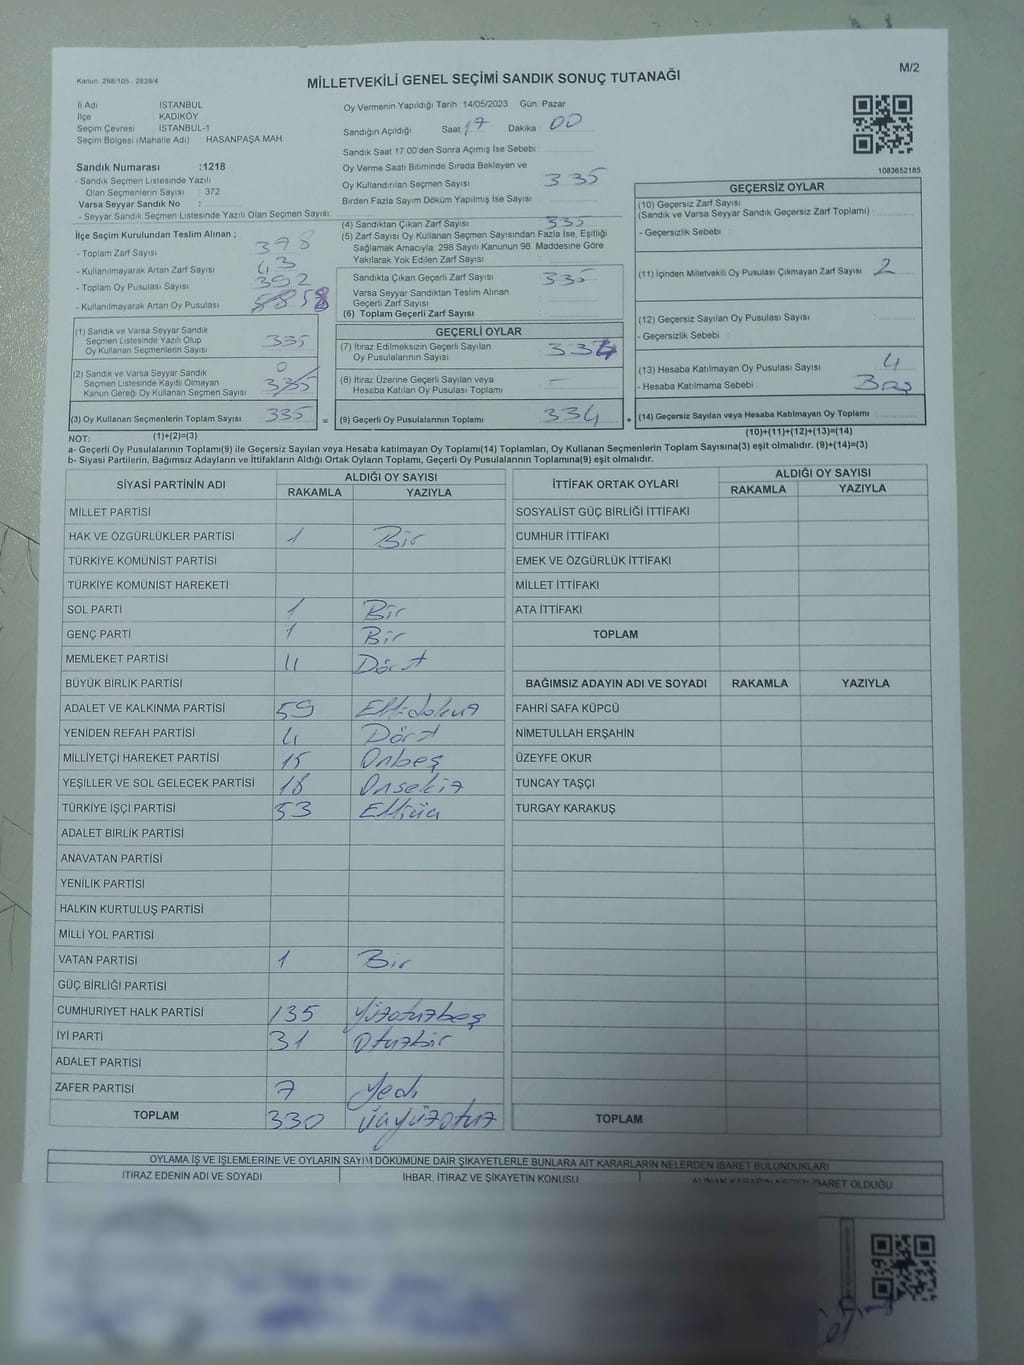 Kanun: 298/105 - 2839/4
MİLLETVEKİLİ GENEL SEÇİMİ SANDIK SONUÇ TUTANAĞI
M/2
İl Adı İSTANBUL
İlçe KADIKÖY
Seçim Çevresi İSTANBUL-1
Seçim Bölgesi (Mahalle Adı) HASANPAŞA MAH.
Sandık Numarası :1218
- Sandık Seçmen Listesinde Yazılı
Olan Seçmenlerin Sayısı : 372
Varsa Seyyar Sandık No :
- Seyyar Sandık Seçmen Listesinde Yazılı Olan Seçmen Sayısı:
İlçe Seçim Kurulundan Teslim Alınan ;
- Toplam Zarf Sayısı 378
- Kullanılmayarak Artan Zarf Sayısı 43
- Toplam Oy Pusulası Sayısı 392
- Kullanılmayarak Artan Oy Pusulası
(1) Sandık ve Varsa Seyyar Sandık
Seçmen Listesinde Yazılı Olup
Oy Kullanan Seçmenlerin Sayısı 335
(2) Sandık ve Varsa Seyyar Sandık 0
Seçmen Listesinde Kayıtlı Olmayan
Kanun Gereği Oy Kullanan Seçmen Sayısı 335
(3) Oy Kullanan Seçmenlerin Toplam Sayısı 335 =
(1)+(2)=(3)
Oy Vermenin Yapıldığı Tarih : 14/05/2023 Gün: Pazar
Sandığın Açıldığı Saat 17 Dakika : 00
Sandık Saat 17.00'den Sonra Açılmış İse Sebebi :
Oy Verme Saati Bitiminde Sırada Bekleyen ve
Oy Kullandırılan Seçmen Sayısı 335
Birden Fazla Sayım Döküm Yapılmış İse Sayısı :
(4) Sandıktan Çıkan Zarf Sayısı 335
(5) Zarf Sayısı Oy Kullanan Seçmen Sayısından Fazla İse, Eşitliği
Sağlamak Amacıyla, 298 Sayılı Kanunun 98. Maddesine Göre
Yakılarak Yok Edilen Zarf Sayısı
Sandıkta Çıkan Geçerli Zarf Sayısı 335
Varsa Seyyar Sandıktan Teslim Alınan
Geçerli Zarf Sayısı
(6) Toplam Geçerli Zarf Sayısı
GEÇERLİ OYLAR
(7) İtiraz Edilmeksizin Geçerli Sayılan
Oy Pusulalarının Sayısı 334
(8) İtiraz Üzerine Geçerli Sayılan veya
Hesaba Katılan Oy Pusulası Toplamı -
(9) Geçerli Oy Pusulalarının Toplamı 334 +
1083652185
GEÇERSİZ OYLAR
(10) Geçersiz Zarf Sayısı
(Sandık ve Varsa Seyyar Sandık Geçersiz Zarf Toplamı) :
- Geçersizlik Sebebi :
(11) İçinden Milletvekili Oy Pusulası Çıkmayan Zarf Sayısı 2
(12) Geçersiz Sayılan Oy Pusulası Sayısı :
- Geçersizlik Sebebi :
(13) Hesaba Katılmayan Oy Pusulası Sayısı 4
- Hesaba Katılmama Sebebi : Boş
(14) Geçersiz Sayılan veya Hesaba Katılmayan Oy Toplamı
(10)+(11)+(12)+(13)=(14)
NOT:
a- Geçerli Oy Pusulalarının Toplamı(9) ile Geçersiz Sayılan veya Hesaba katılmayan Oy Toplamı(14) Toplamları, Oy Kullanan Seçmenlerin Toplam Sayısına(3) eşit olmalıdır. (9)+(14)=(3)
b- Siyasi Partilerin, Bağımsız Adayların ve İttifakların Aldığı Ortak Oyların Toplamı, Geçerli Oy Pusulalarının Toplamına(9) eşit olmalıdır.
SİYASİ PARTİNİN ADI ALDIĞI OY SAYISI
RAKAMLA YAZIYLA
MİLLET PARTİSİ
HAK VE ÖZGÜRLÜKLER PARTİSİ 1 Bir
TÜRKİYE KOMÜNİST PARTİSİ
TÜRKİYE KOMÜNİST HAREKETİ
SOL PARTİ 1 Bir
GENÇ PARTİ 1 Bir
MEMLEKET PARTİSİ 4 Dört
BÜYÜK BİRLİK PARTİSİ
ADALET VE KALKINMA PARTİSİ 59 Ellidokuz
YENİDEN REFAH PARTİSİ 4 Dört
MİLLİYETÇİ HAREKET PARTİSİ 15 Onbeş
YEŞİLLER VE SOL GELECEK PARTİSİ 18 Onsekiz
TÜRKİYE İŞÇİ PARTİSİ 53 Elliüç
ADALET BİRLİK PARTİSİ
ANAVATAN PARTİSİ
YENİLİK PARTİSİ
HALKIN KURTULUŞ PARTİSİ
MİLLİ YOL PARTİSİ
VATAN PARTİSİ 1 Bir
GÜÇ BİRLİĞİ PARTİSİ
CUMHURİYET HALK PARTİSİ 135 Yüzotuzbeş
İYİ PARTİ 31 Otuzbir
ADALET PARTİSİ
ZAFER PARTİSİ 7 Yedi
TOPLAM 330 Üçyüzotuz
İTTİFAK ORTAK OYLARI ALDIĞI OY SAYISI
RAKAMLA YAZIYLA
SOSYALİST GÜÇ BİRLİĞİ İTTİFAKI
CUMHUR İTTİFAKI
EMEK VE ÖZGÜRLÜK İTTİFAKI
MİLLET İTTİFAKI
ATA İTTİFAKI
TOPLAM
BAĞIMSIZ ADAYIN ADI VE SOYADI RAKAMLA YAZIYLA
FAHRİ SAFA KÜPCÜ
NİMETULLAH ERŞAHİN
ÜZEYFE OKUR
TUNCAY TAŞÇI
TURGAY KARAKUŞ
TOPLAM
OYLAMA İŞ VE İŞLEMLERİNE VE OYLARIN SAYIM DÖKÜMÜNE DAİR ŞİKAYETLERLE BUNLARA AİT KARARLARIN NELERDEN İBARET BULUNDUKLARI
İTİRAZ EDENİN ADI VE SOYADI İHBAR, İTİRAZ VE ŞİKAYETİN KONUSU ALINAN KARARIN NEDEN İBARET OLDUĞU